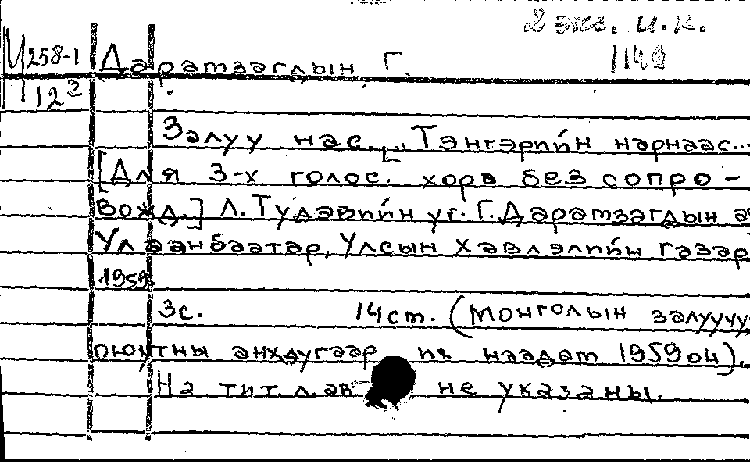 2 экз. и.к.
Ц258-1 Дарамзагдын Г. 1140
123
Залуу нас... Тэнгэрийн нарнаас...
[Для 3-х голос. хора без сопро-
вожд.] Л. Тудэвийн үг. Г. Дарамзагдын а
Улаанбаатар, Улсын хэвлэлийн газар
1959.
3с. 14 ст. (Монголын залуучу
оюутны анхдугаар их наадам 1959 он).
На тит. л. ав не указаны.